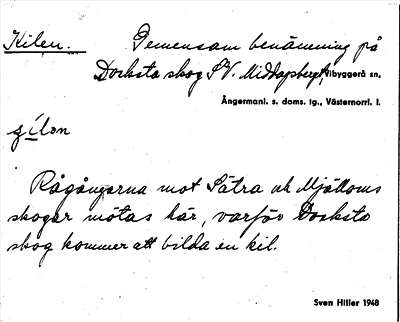 Kilen. Gemensam benämning på
Docksta skog S.V. Middagsberget, Vibyggerå sn,
Ångermanl. s. doms. tg., Västernorrl. l.
Rågångarna mot Sätra och Mjälloms
skogar mötas här, varför Docksta
skog kommer att bilda en kil.
Sven Hiller 1948